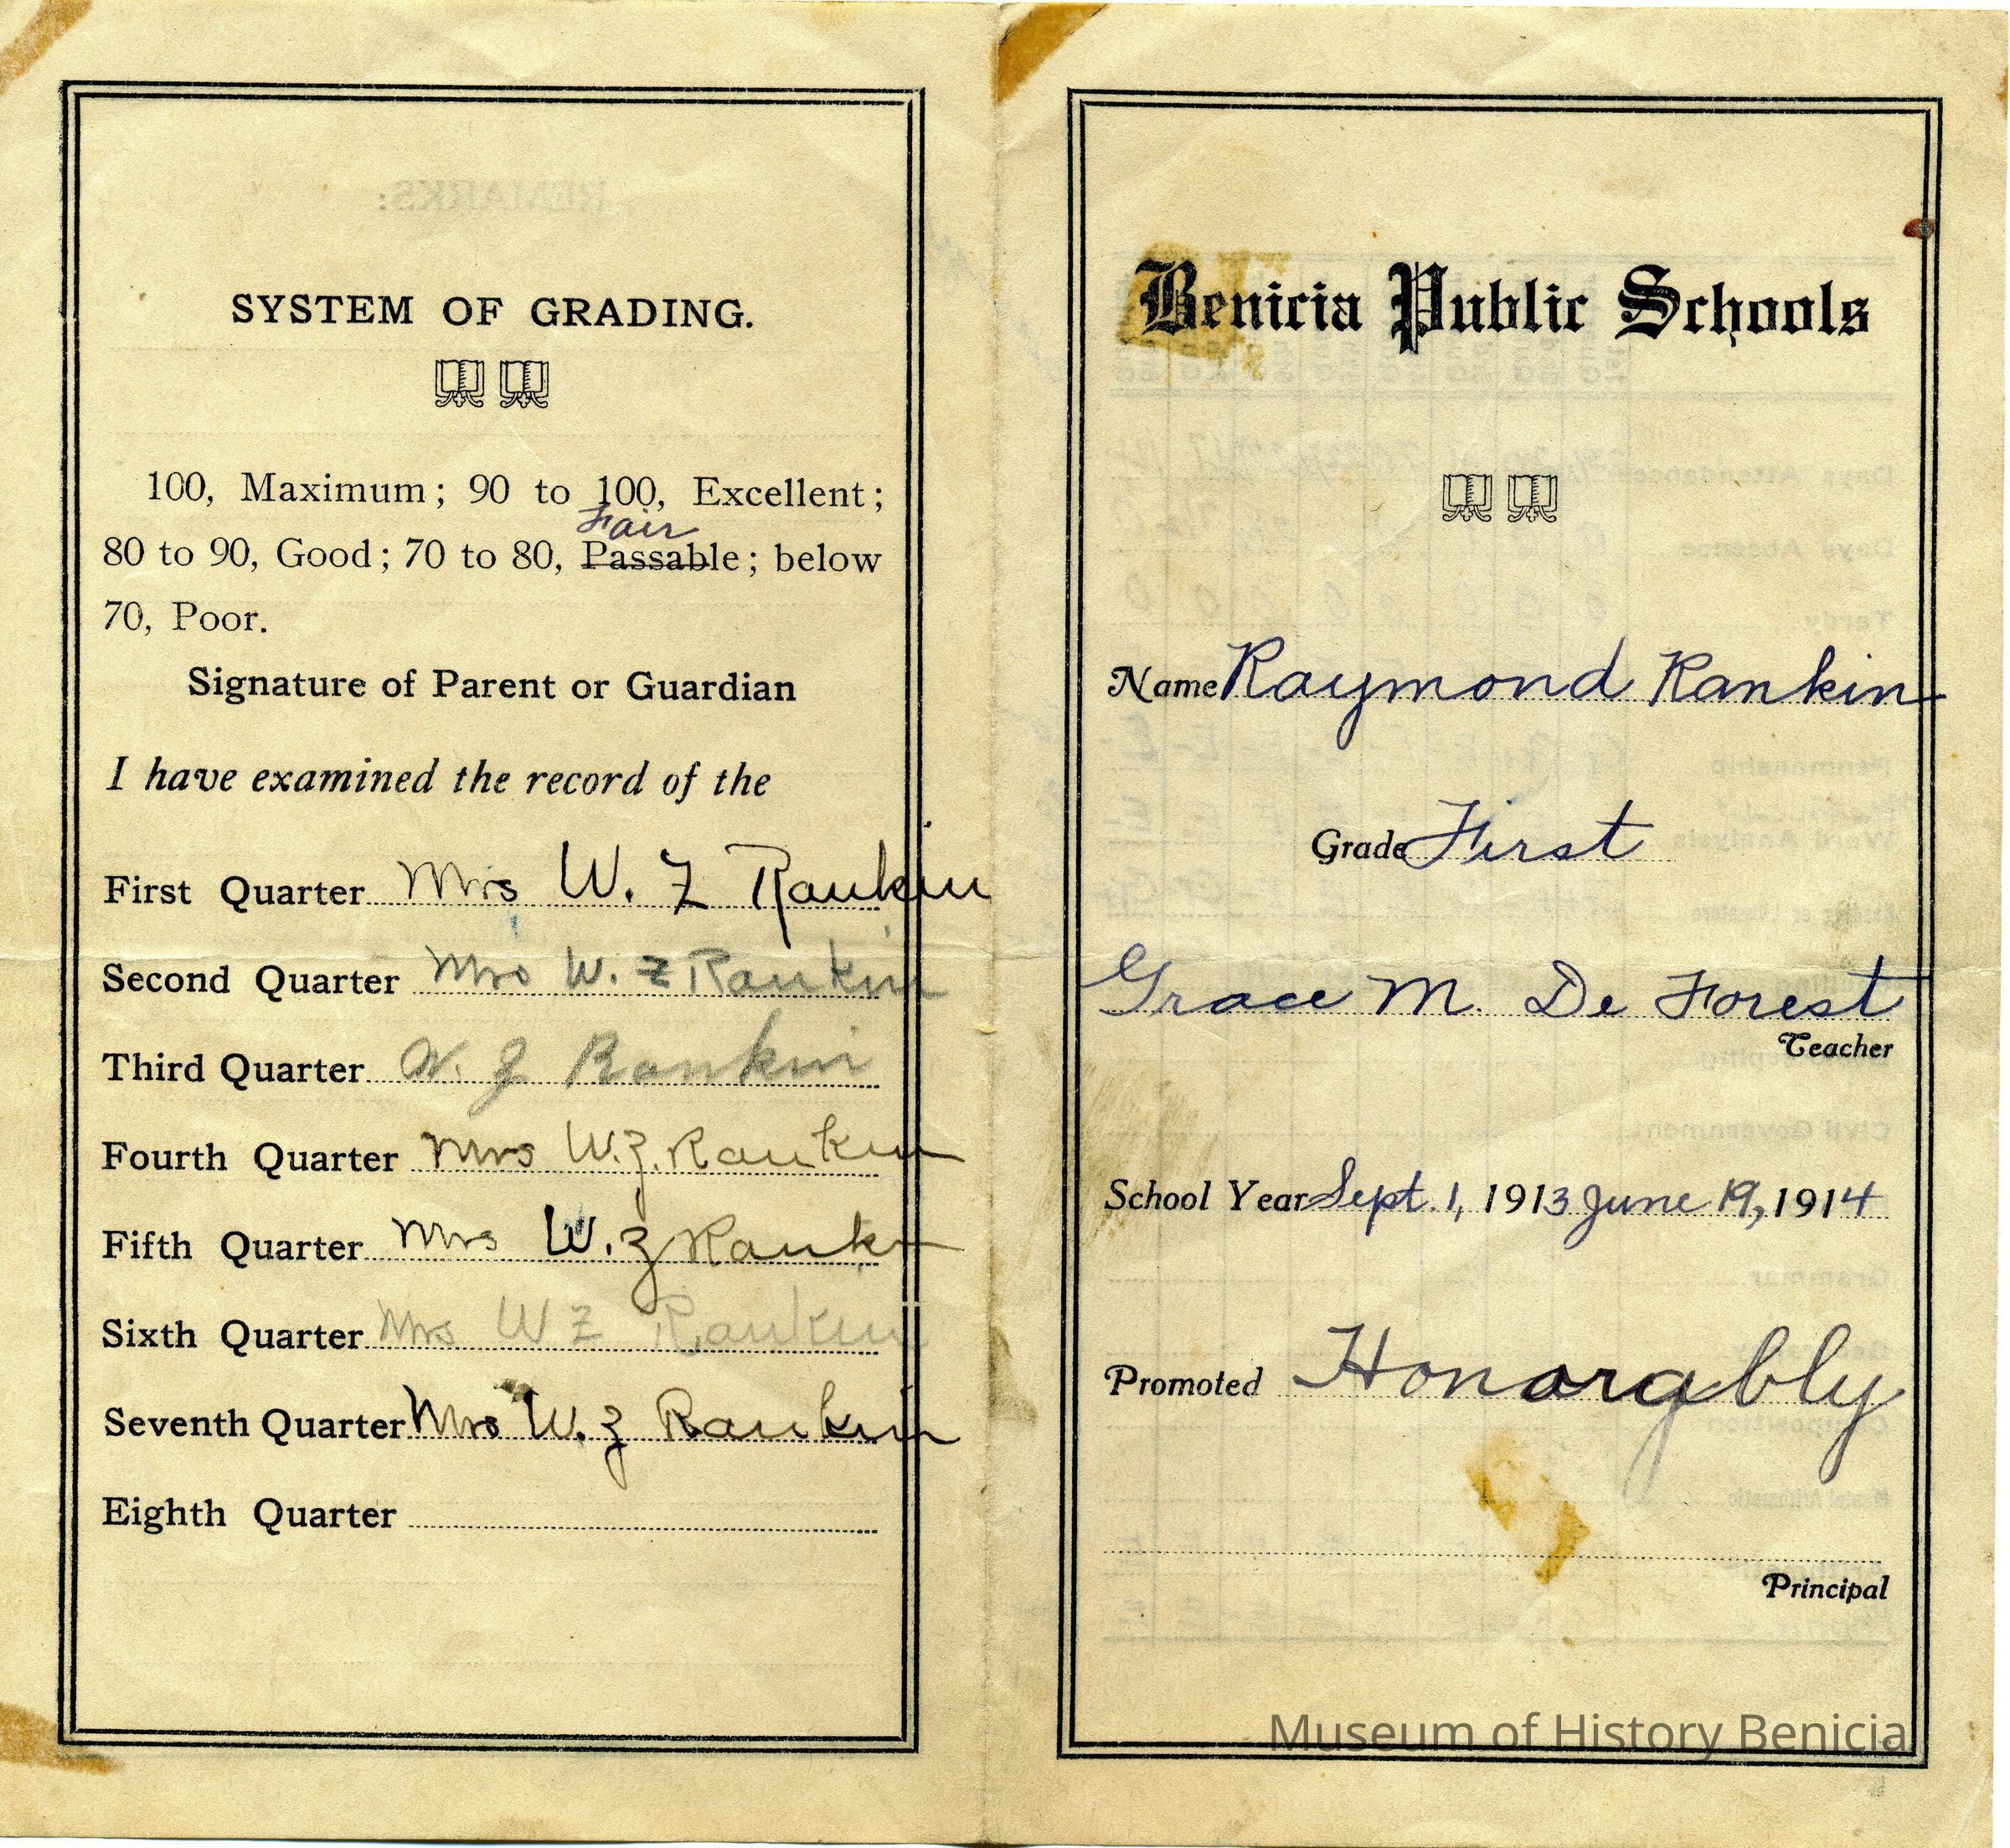 SYSTEM OF GRADING.
100, Maximum; 90 to 100, Excellent;
Fair
80 to 90, Good; 70 to 80, Passable; below
70, Poor.
Signature of Parent or Guardian
I have examined the record of the
First Quarter Mrs W. Z Rankin
Second Quarter Mrs W. Z Rankin
Third Quarter W. Z Rankin
Fourth Quarter Mrs W.Z. Rankin
Fifth Quarter Mrs W. Z Rankin
Sixth Quarter Mrs W Z Rankin
Seventh Quarter Mrs W. Z Rankin
Eighth Quarter
Benicia Public Schools
Name Raymond Rankin
Grade First
Grace M. De Forest
Teacher
School Year Sept. 1, 1913 June 19, 1914
Promoted Honorably
Principal
Museum of History Benicia